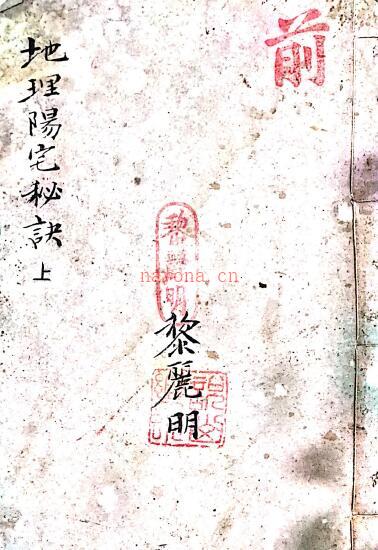 前
地理陽宅秘訣 上
黎麗明
黎麗明
nayona.cn